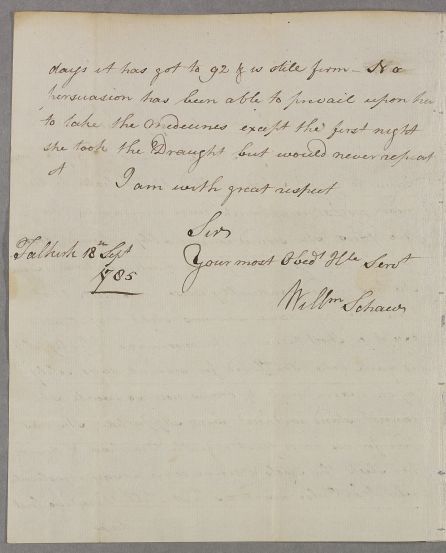 days it has got to 92 & is still firm - No
persuasion has been able to prevail upon her
to take the Medicines except the first night
she took the Draught but would never repeat
it I am with great respect
Sir
Your most Obedt Hle Servt
Falkirk 18th Sept
1785
Willm Schaw